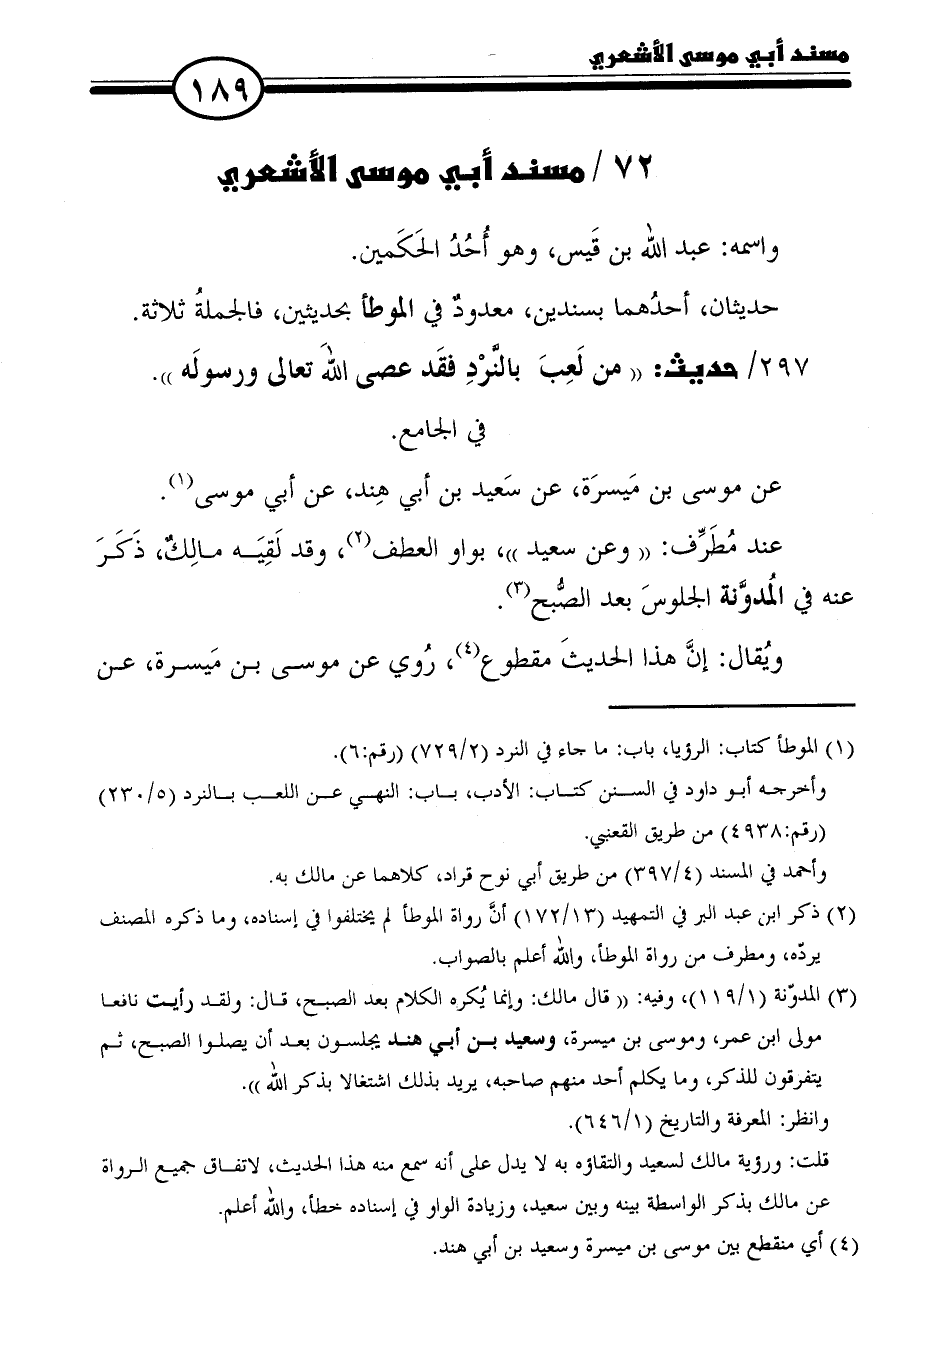 مسند أبي موسى الأشعري
١٨٩
٧٢ / مسند أبي موسى الأشعري
واسمه: عبد الله بن قَيس، وهو أُحُدُ الحَكَمين.
حديثان، أحدُهما بسندين، معدودٌ في الموطأ بحديثين، فالجملةُ ثلاثة.
٢٩٧/ حديث: (( من لَعِبَ بالنَّرْدِ فقَد عصى اللهَ تعالى ورسولَه )).
في الجامع.
عن موسى بن مَيسرَة، عن سَعيد بن أبي هِند، عن أبي موسى(١).
عند مُطَرِّف: (( وعن سعيد ))، بواو العطف(٢)، وقد لَقِيَـه مـالِكٌ، ذَكَـرَ
عنه في المُدوَّنة الجلوسَ بعد الصُّبح(٣).
ويُقال: إنَّ هذا الحديثَ مقطوع(٤)، رُوي عن موسـى بـن مَيسـرة، عـن
(١) الموطأ كتاب: الرؤيا، باب: ما جاء في النرد (٧٢٩/٢) (رقم:٦).
وأخرجـه أبـو داود في السـنن كتـاب: الأدب، بـاب: النهـي عـن اللعـب بـالنرد (٢٣٠/٥)
(رقم:٤٩٣٨) من طريق القعنبي.
وأحمد في المسند (٣٩٧/٤) من طريق أبي نوح قراد، كلاهما عن مالك به.
(٢) ذكر ابن عبد البر في التمهيد (١٧٢/١٣) أنَّ رواة الموطأ لم يختلفوا في إسناده، وما ذكره المصنف
يردّه، ومطرف من رواة الموطأ، والله أعلم بالصواب.
(٣) المدوّنة (١١٩/١)، وفيه: (( قال مالك: وإنما يُكره الكلام بعد الصبح، قال: ولقد رأيت نافعا
مولى ابن عمر، وموسى بن ميسرة، وسعيد بـن أبي هنـد يجلسـون بعـد أن يصلـوا الصبـح، ثـم
يتفرقون للذكر، وما يكلم أحد منهم صاحبه، يريد بذلك اشتغالا بذكر الله )).
وانظر: المعرفة والتاريخ (٦٤٦/١).
قلت: ورؤية مالك لسعيد والتقاؤه به لا يدل على أنه سمع منه هذا الحديث، لاتفـاق جميـع الـرواة
عن مالك بذكر الواسطة بينه وبين سعيد، وزيادة الواو في إسناده خطأ، والله أعلم.
(٤) أي منقطع بين موسى بن ميسرة وسعيد بن أبي هند.